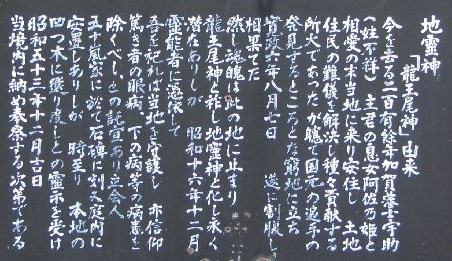 地霊神
「龍王尾神」由来
今を去る二百有余年加賀藩士宇助
(姓不祥)主君の息女阿佐乃姫と
相愛の末当地に来り安住し 土地
住民の難儀を解決し種々貢献する
所大であったが魏々国元の追手の
発見するところとなり窮地に立ち
寛政六年八月七日 遂に割腹し
相果てた
然し魂魄は此の地に止まり
龍王尾神と称し地霊神と化し永く
潜在ありしが 昭和十六年十二月
霊能者に憑依して
吾を祀れば当地を守護し 亦信仰
篤き者の眼病 下の病等の病患を
除くべし、との託宣あり立会人
五十嵐家に於て石碑に刻み庭内に
安置しありしが 時至り 本地の
四つ木に懺り度しとの霊示を受け
昭和五十三年十二月吉日
当境内に納め奉祭する次第である